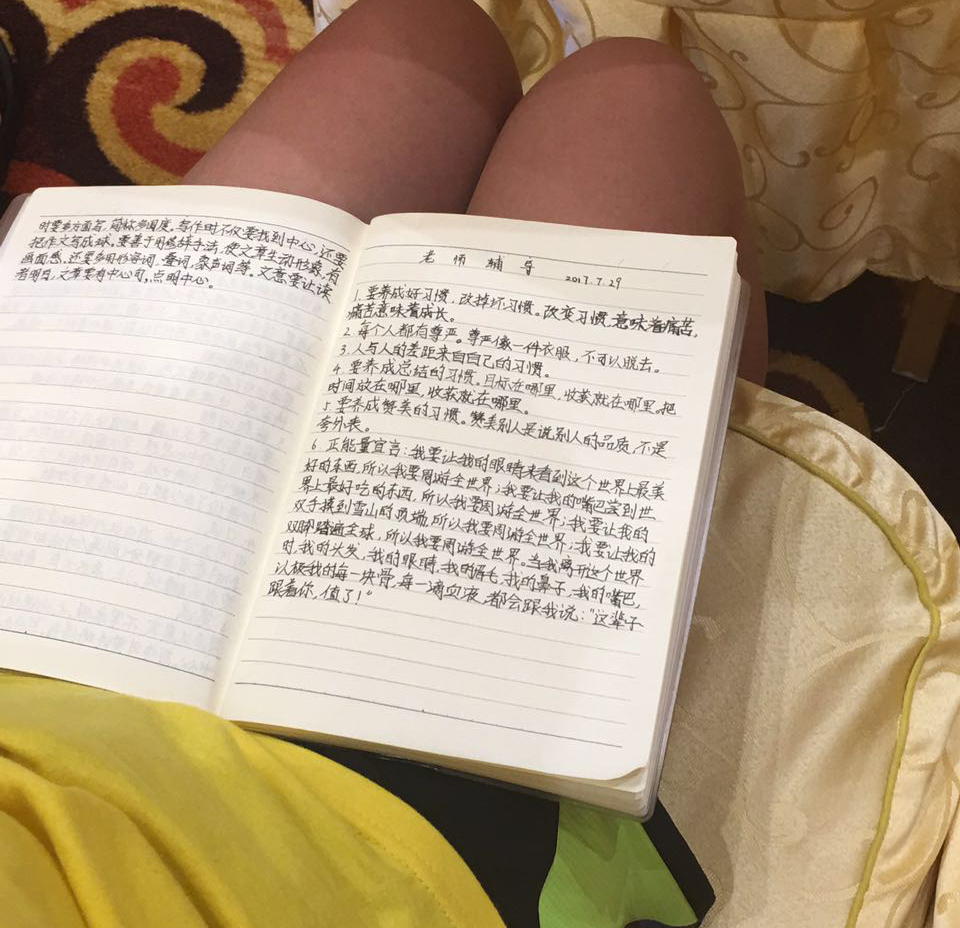 时要多方面写,简称多围度。写作时不仅要找到中心,还要
把作文写成球。要善于用修辞手法,使文章生动形象,有
画面感,还要多用形容词,叠词,象声词等。文章要让读
者明白,文章要有中心句,点明中心。
老师辅导
2017.7.29
1.要养成好习惯,改掉坏习惯。改变习惯,意味着痛苦,
痛苦意味着成长。
2.每个人都有尊严。尊严像一件衣服,不可以脱去。
3.人与人的差距来自自己的习惯。
4.要养成总结的习惯。目标在哪里,收获就在哪里。把
时间放在哪里,收获就在哪里。
5.要养成赞美的习惯。赞美别人是说别人的品质,不是
夸外表。
6.正能量宣言:我要让我的眼睛来看到这个世界上最美
好的东西,所以我要周游全世界;我要让我的嘴巴尝到世
界上最好吃的东西,所以我要周游全世界;我要让我的
双手摸到雪山的顶端,所以我要周游全世界;我要让我的
双脚踏遍全球,所以我要周游全世界。当我离开这个世界
时,我的头发,我的眼睛,我的眉毛,我的鼻子,我的嘴巴,
以极我的每一块骨,每一滴血液,都会跟我说:“这辈子
跟着你,值了!”